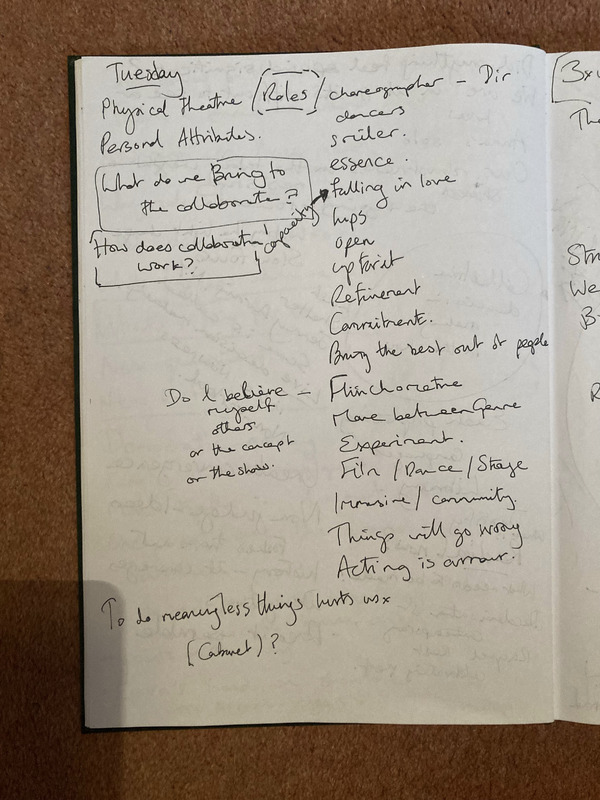 Tuesday
Physical Theatre / Roles / choreographer - Dir
dancers
Personal Attributes.
smiler.
essence.
What do we Bring to
the collaborate?
falling in love
capacity
hips
How does collaboration
work?
open
upfront
Refinement
Commitment.
Bring the best out of people
Do I believe -
myself
others
or the concept
or the show.
Move between Genre
Experiment.
Film / Dance / Stage
Immersive / community.
Things will go wrong
Acting is armour.
To do meaningless things hurts us x
(Cabaret)?
Bx
Th
Str
We
B
R